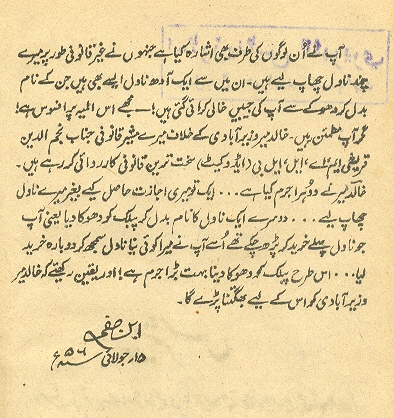 آپ نے اُن لوگوں کی طرف بھی اشارہ کیا ہے جنہوں نے غیر قانونی طور پر میرے
چند ناول چھاپ لیے ہیں۔ ان میں سے ایک آدھ ناول ایسے بھی ہیں جن کے نام
بدل کر دھوکے سے آپ کی جیبیں خالی کرائی گئی ہیں!۔ مجھے اس المیہ پر افسوس ہے؛
مگر آپ مطمئن رہیں۔ خالد میر وزیر آبادی کے خلاف میرے مشیر قانونی جناب نجم الدین
قریشی ایم۔ اے' ایل' ایل بی (ایڈووکیٹ) سخت ترین قانونی کارروائی کر رہے ہیں۔
خالد میر نے دوہرا جرم کیا ہے... ایک تو میری اجازت حاصل کیے بغیر میرے ناول
چھاپ لیے... دوسرے ایک ناول کا نام بدل کر پبلک کو دھوکا دیا یعنی آپ
جو ناول پہلے خرید کر پڑھ چکے تھے اُسے آپ نے میرا کوئی نیا ناول سمجھ کر دوبارہ خرید
لیا... اس طرح پبلک کو دھوکا دینا بہت بڑا جرم ہے! اور یقین رکھیئے کہ خالد میر
وزیر آبادی کو اس کے لیے بھگتنا پڑے گا۔
ابن صفی
۱۵؍ جولائی ۵۶ سنہ ء